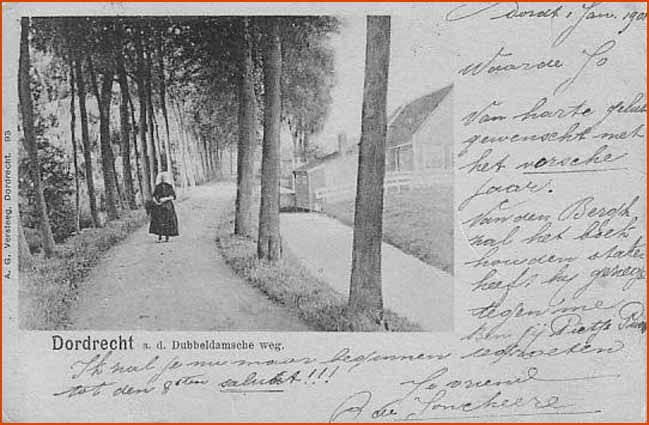 Dordt 1 Jan. 190
Waarde Jo
Van harte geluk
gewenscht met
het versche
jaar.
Van den Bergh
zal het boek
houden
heeft hij
tegen me
Ben jij Pietje
A. G. Versteeg, Dordrecht. 93
Dordrecht a. d. Dubbeldamsche weg.
Ik zal je nu maar beginnen te groeten
tot den 8sten saluut!!!
Je vriend
de Jonckheere